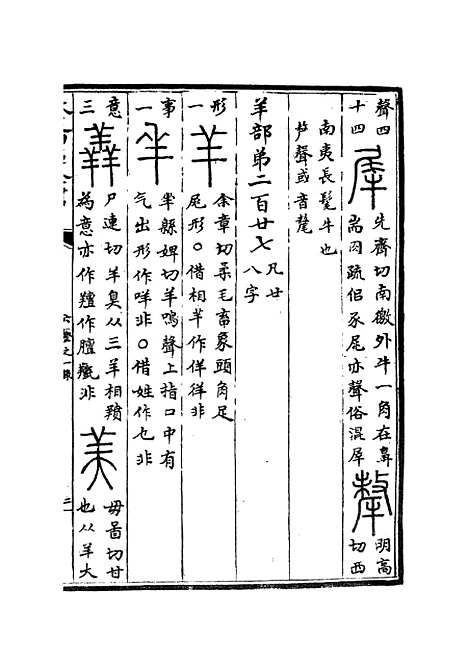 聲四
十四
犀
先齊切南徼外牛一角在鼻
耑囟疏侣豕尾亦聲俗混犀
犛
明高
切西
南夷長髦牛也
芦聲或音氂
羊部第二百廿七
凡廿
八字
形
一
羊
余章切柔毛畜象頭角足
尾形○借相羊作佯徉非
事
一
羋
羋緜婢切羊鳴聲上指口中有
气出形作咩非○借姓作乜非
意
三
羴
尸連切羊臭从三羊相羵
為意亦作羶作膻𦏧非
美
毋啚切甘
也从羊大
六書之一錄